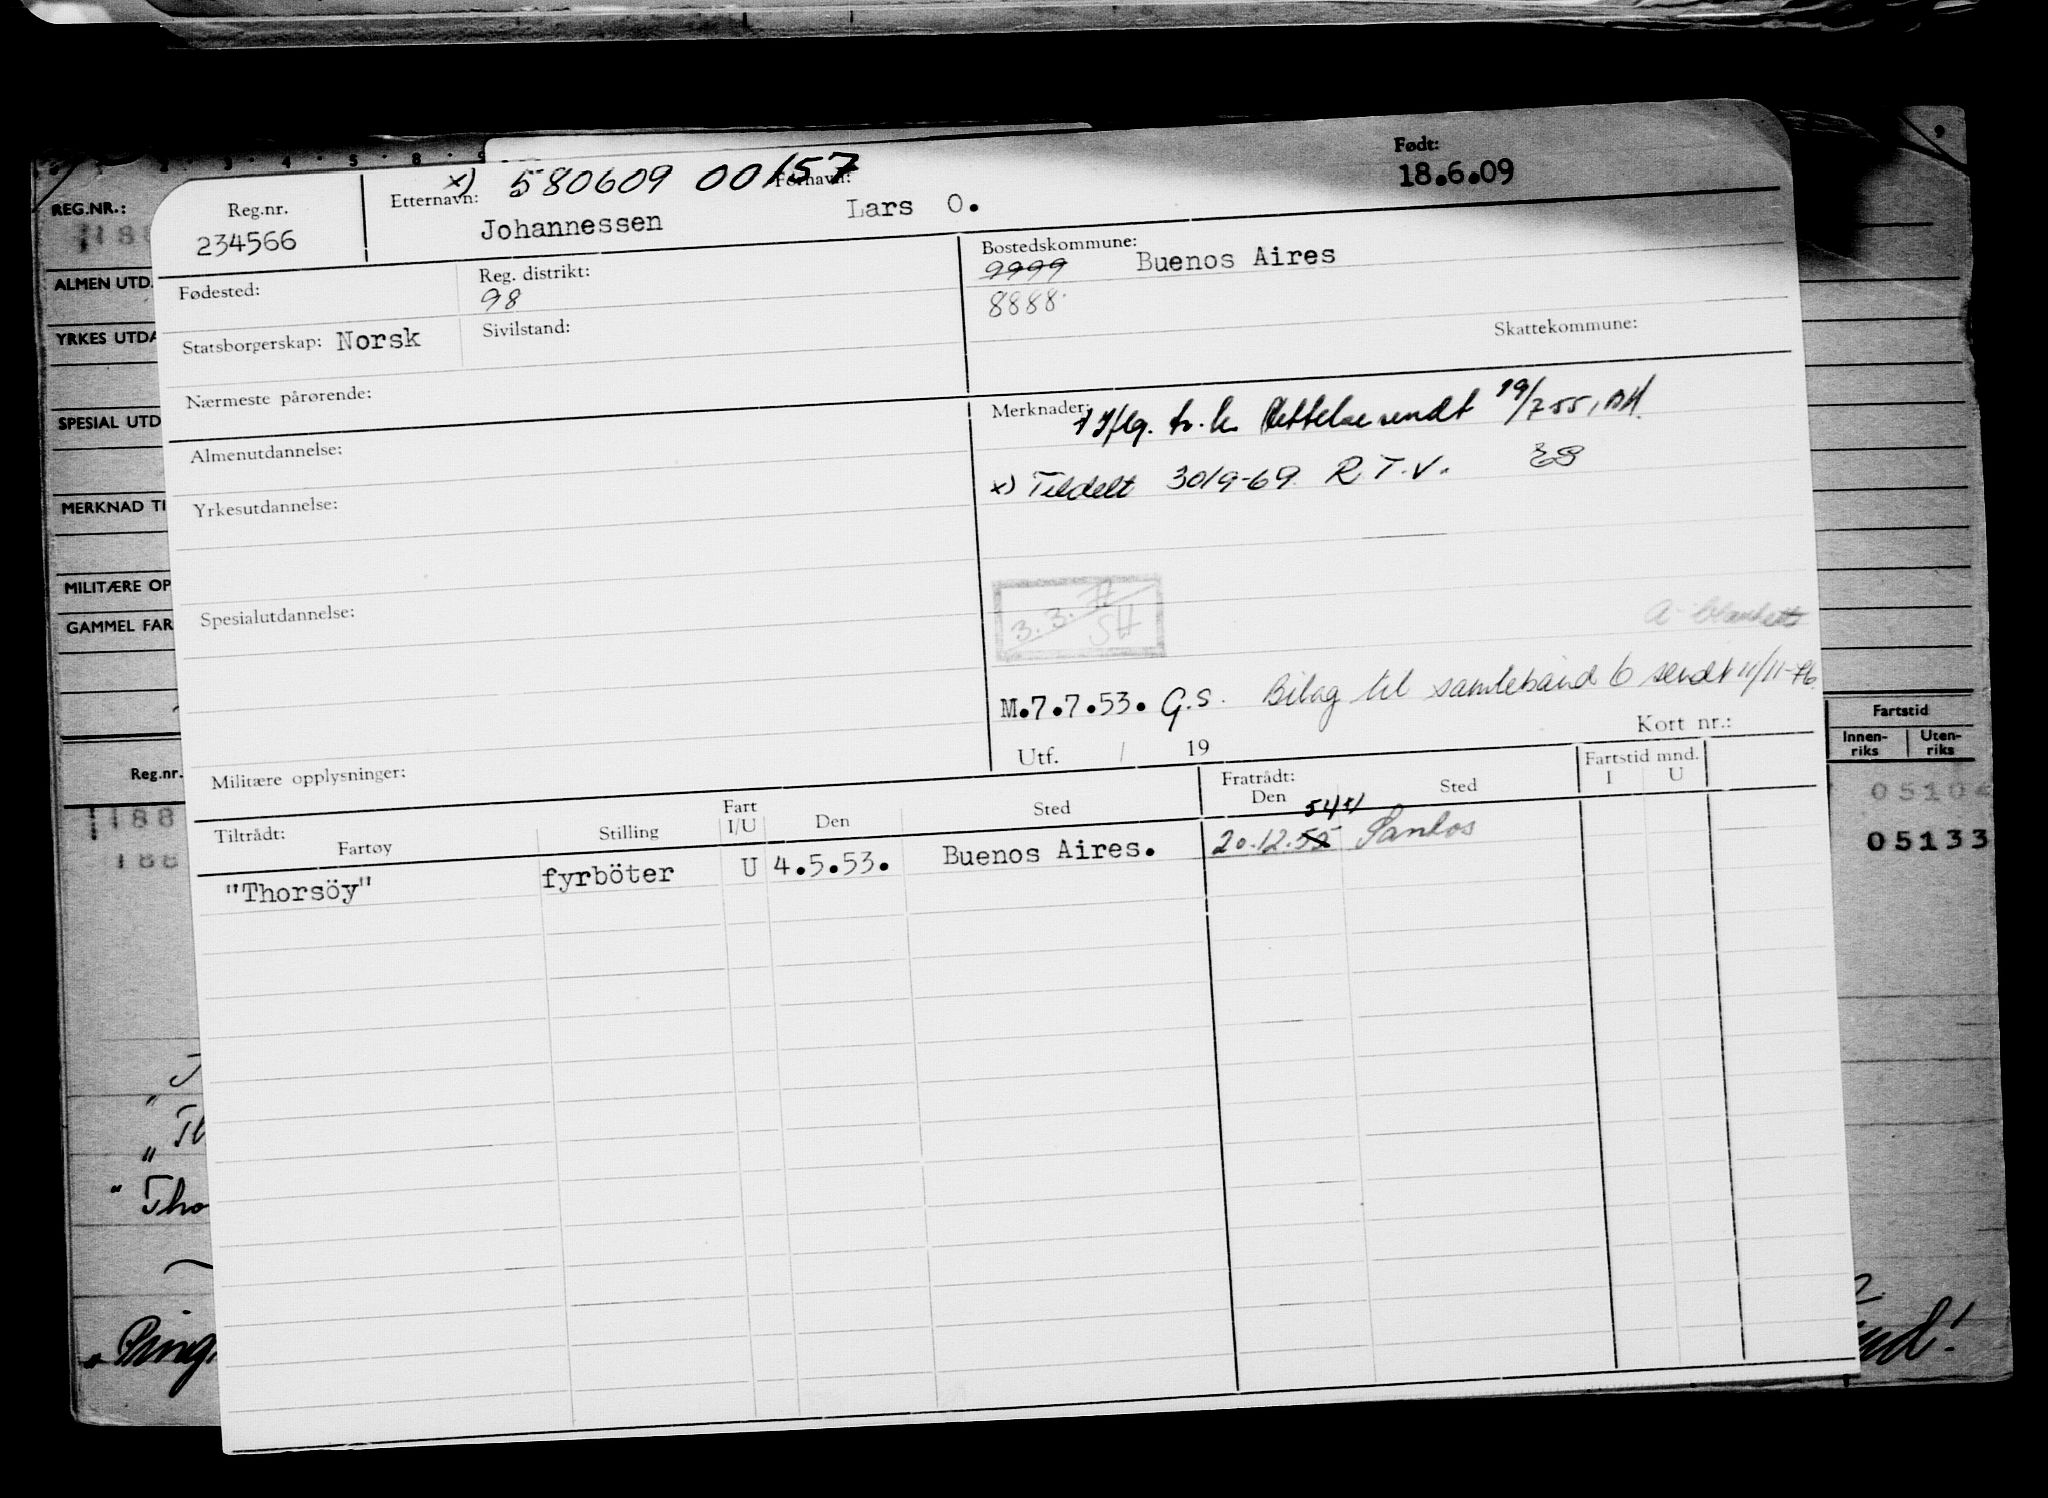 REG.NR.:
ALMEN UTD.
YRKES UTDA
SPESIAL UTD
MERKNAD TI
MILITÆRE OP
GAMMEL FAR
Reg.nr.
Fartstid
Innen-riks Uten-riks
05102
05133
Reg.nr.
234566
x) 580609 00157
Etternavn: Fornavn:
Johannessen Lars O.
Født:
18.6.09
Fødested:
Reg. distrikt:
98
Bostedskommune:
9999 Buenos Aires
8888
Statsborgerskap: Norsk
Sivilstand:
Skattekommune:
Nærmeste pårørende:
Merknader:
sendt 19/7 55,
Almenutdannelse:
x) Tildelt 30/9-69 R.T.V.
Yrkesutdannelse:
Spesialutdannelse:
3.3.
SH
M.7.7.53. G.S. Bilag til samlebånd 6 sendt 11/11-76.
Utf. / 19
Kort nr.:
Militære opplysninger:
Tiltrådt: Fratrådt: Fartstid mnd.
Fartøy Stilling Fart I/U Den Sted Den Sted I U
54
"Thorsöy" fyrböter U 4.5.53. Buenos Aires. 20.12.52 Santos
Tho